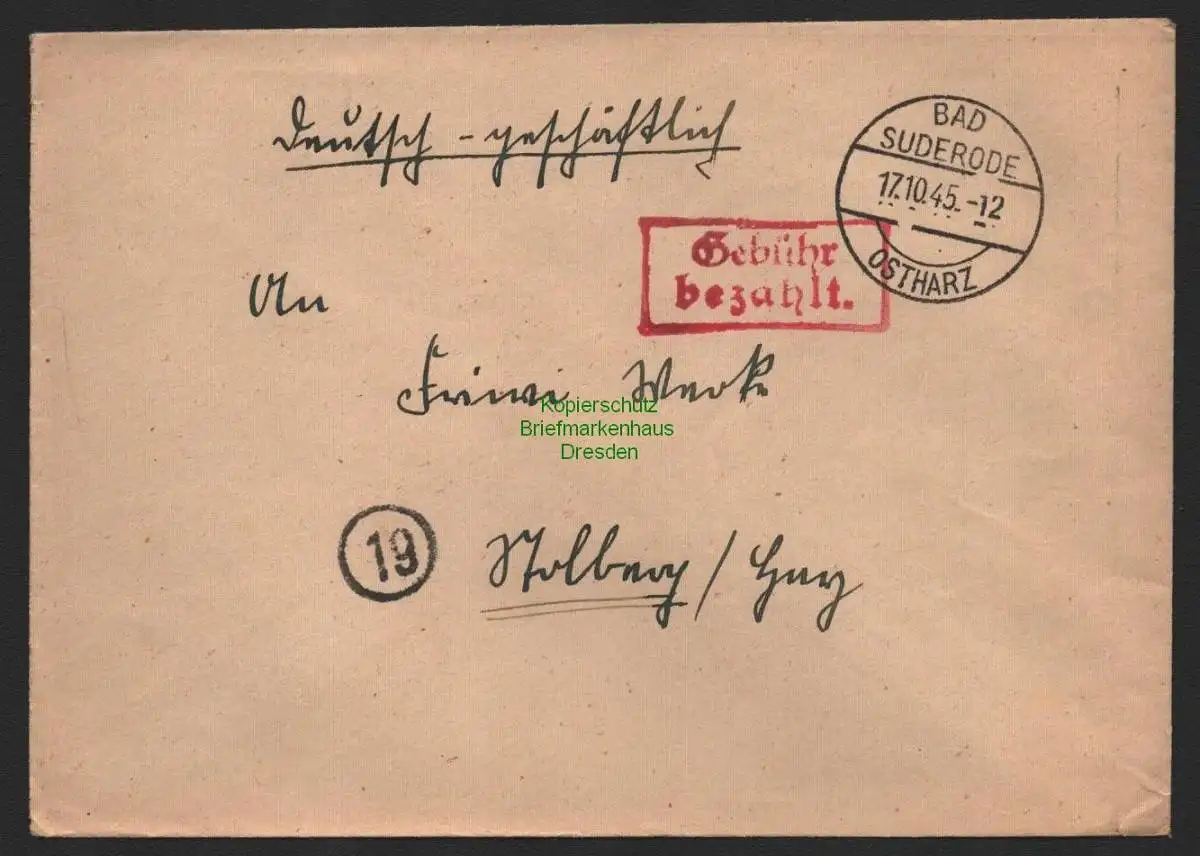 Deutsch - geschäftlich
BAD
SUDERODE
17.10.45.-12
OSTHARZ
Gebühr
bezahlt.
An
Friwi Werke
Kopierschutz
Briefmarkenhaus
Dresden
19
Stolberg / Harz